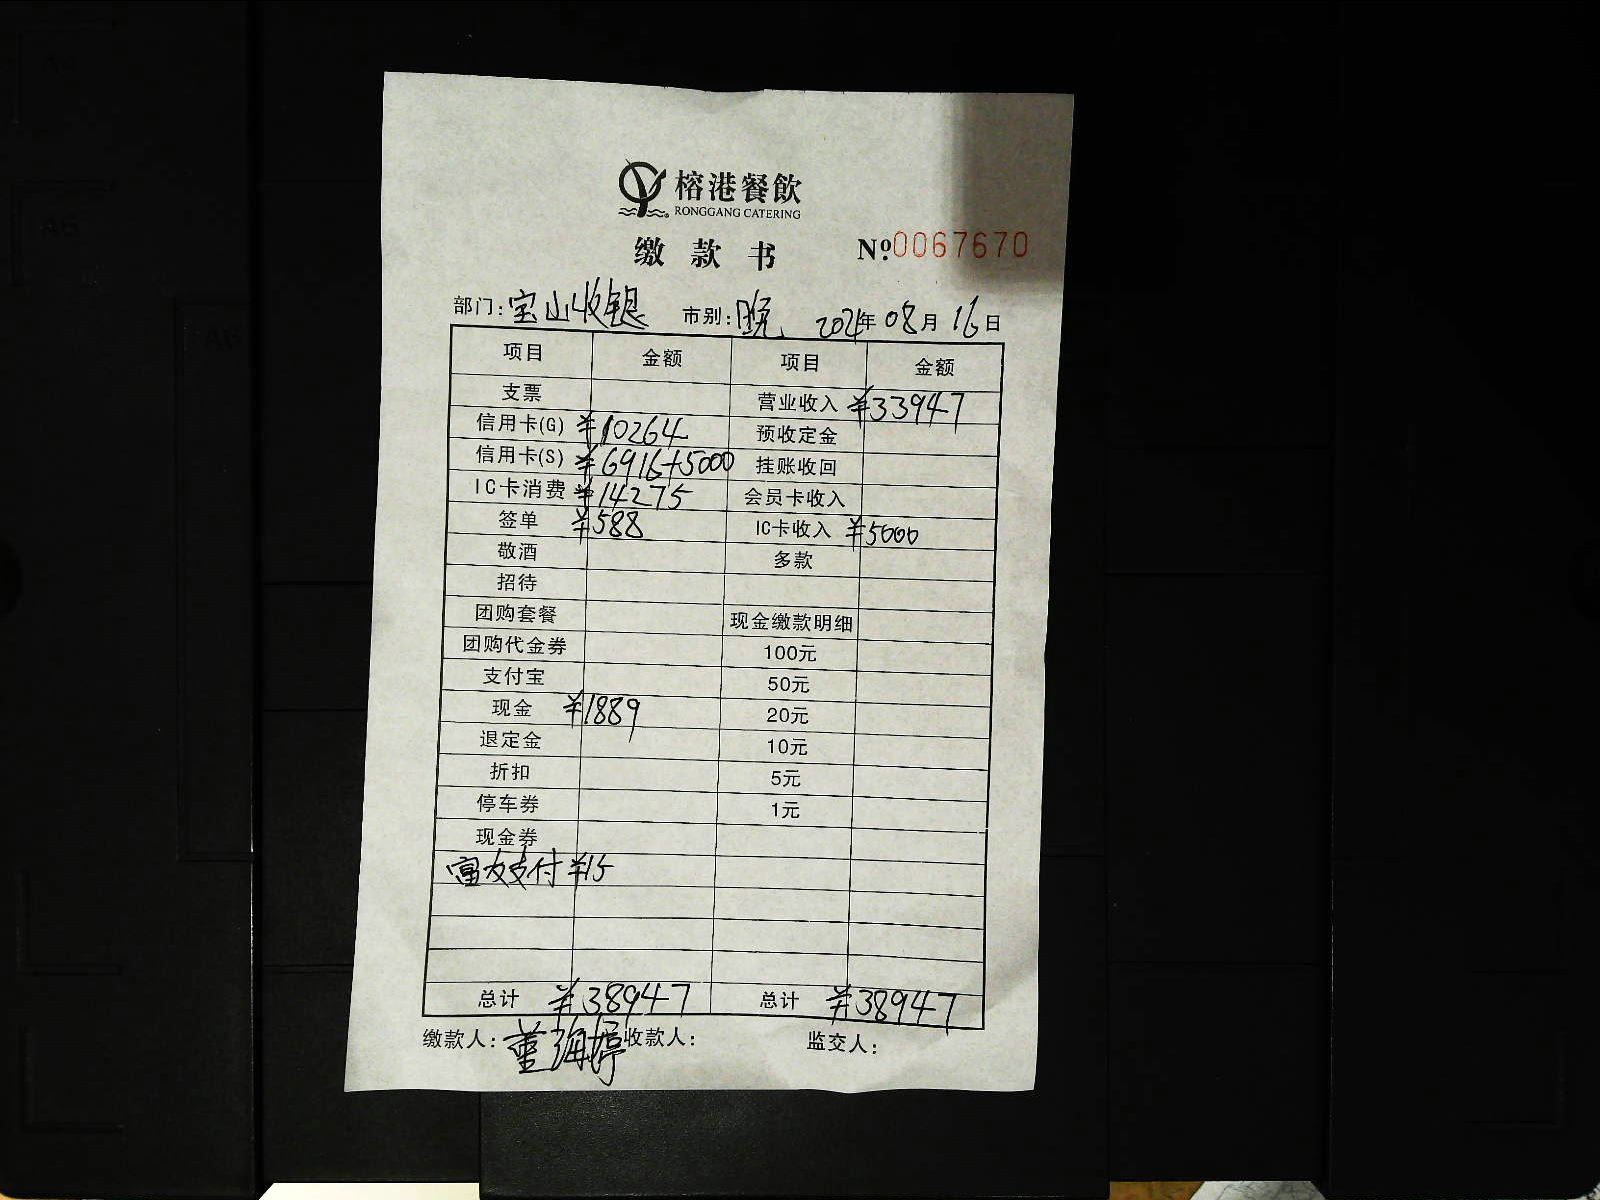 榕港餐飲
RONGGANG CATERING
缴款书 Nº.0067670
部门:宝山收银 市别:晚 2024年08月16日
项目 金额 项目 金额
支票 营业收入 ¥33947
信用卡(G) ¥10264 预收定金
信用卡(S) ¥6916+5000 挂账收回
IC卡消费 ¥14275 会员卡收入
签单 ¥588 IC卡收入 ¥5000
敬酒 多款
招待
团购套餐 现金缴款明细
团购代金券 100元
支付宝 50元
现金 ¥1889 20元
退定金 10元
折扣 5元
停车券 1元
现金券
富友支付 ¥15
总计 ¥38947 总计 ¥38947
缴款人:董海婷 收款人: 监交人: